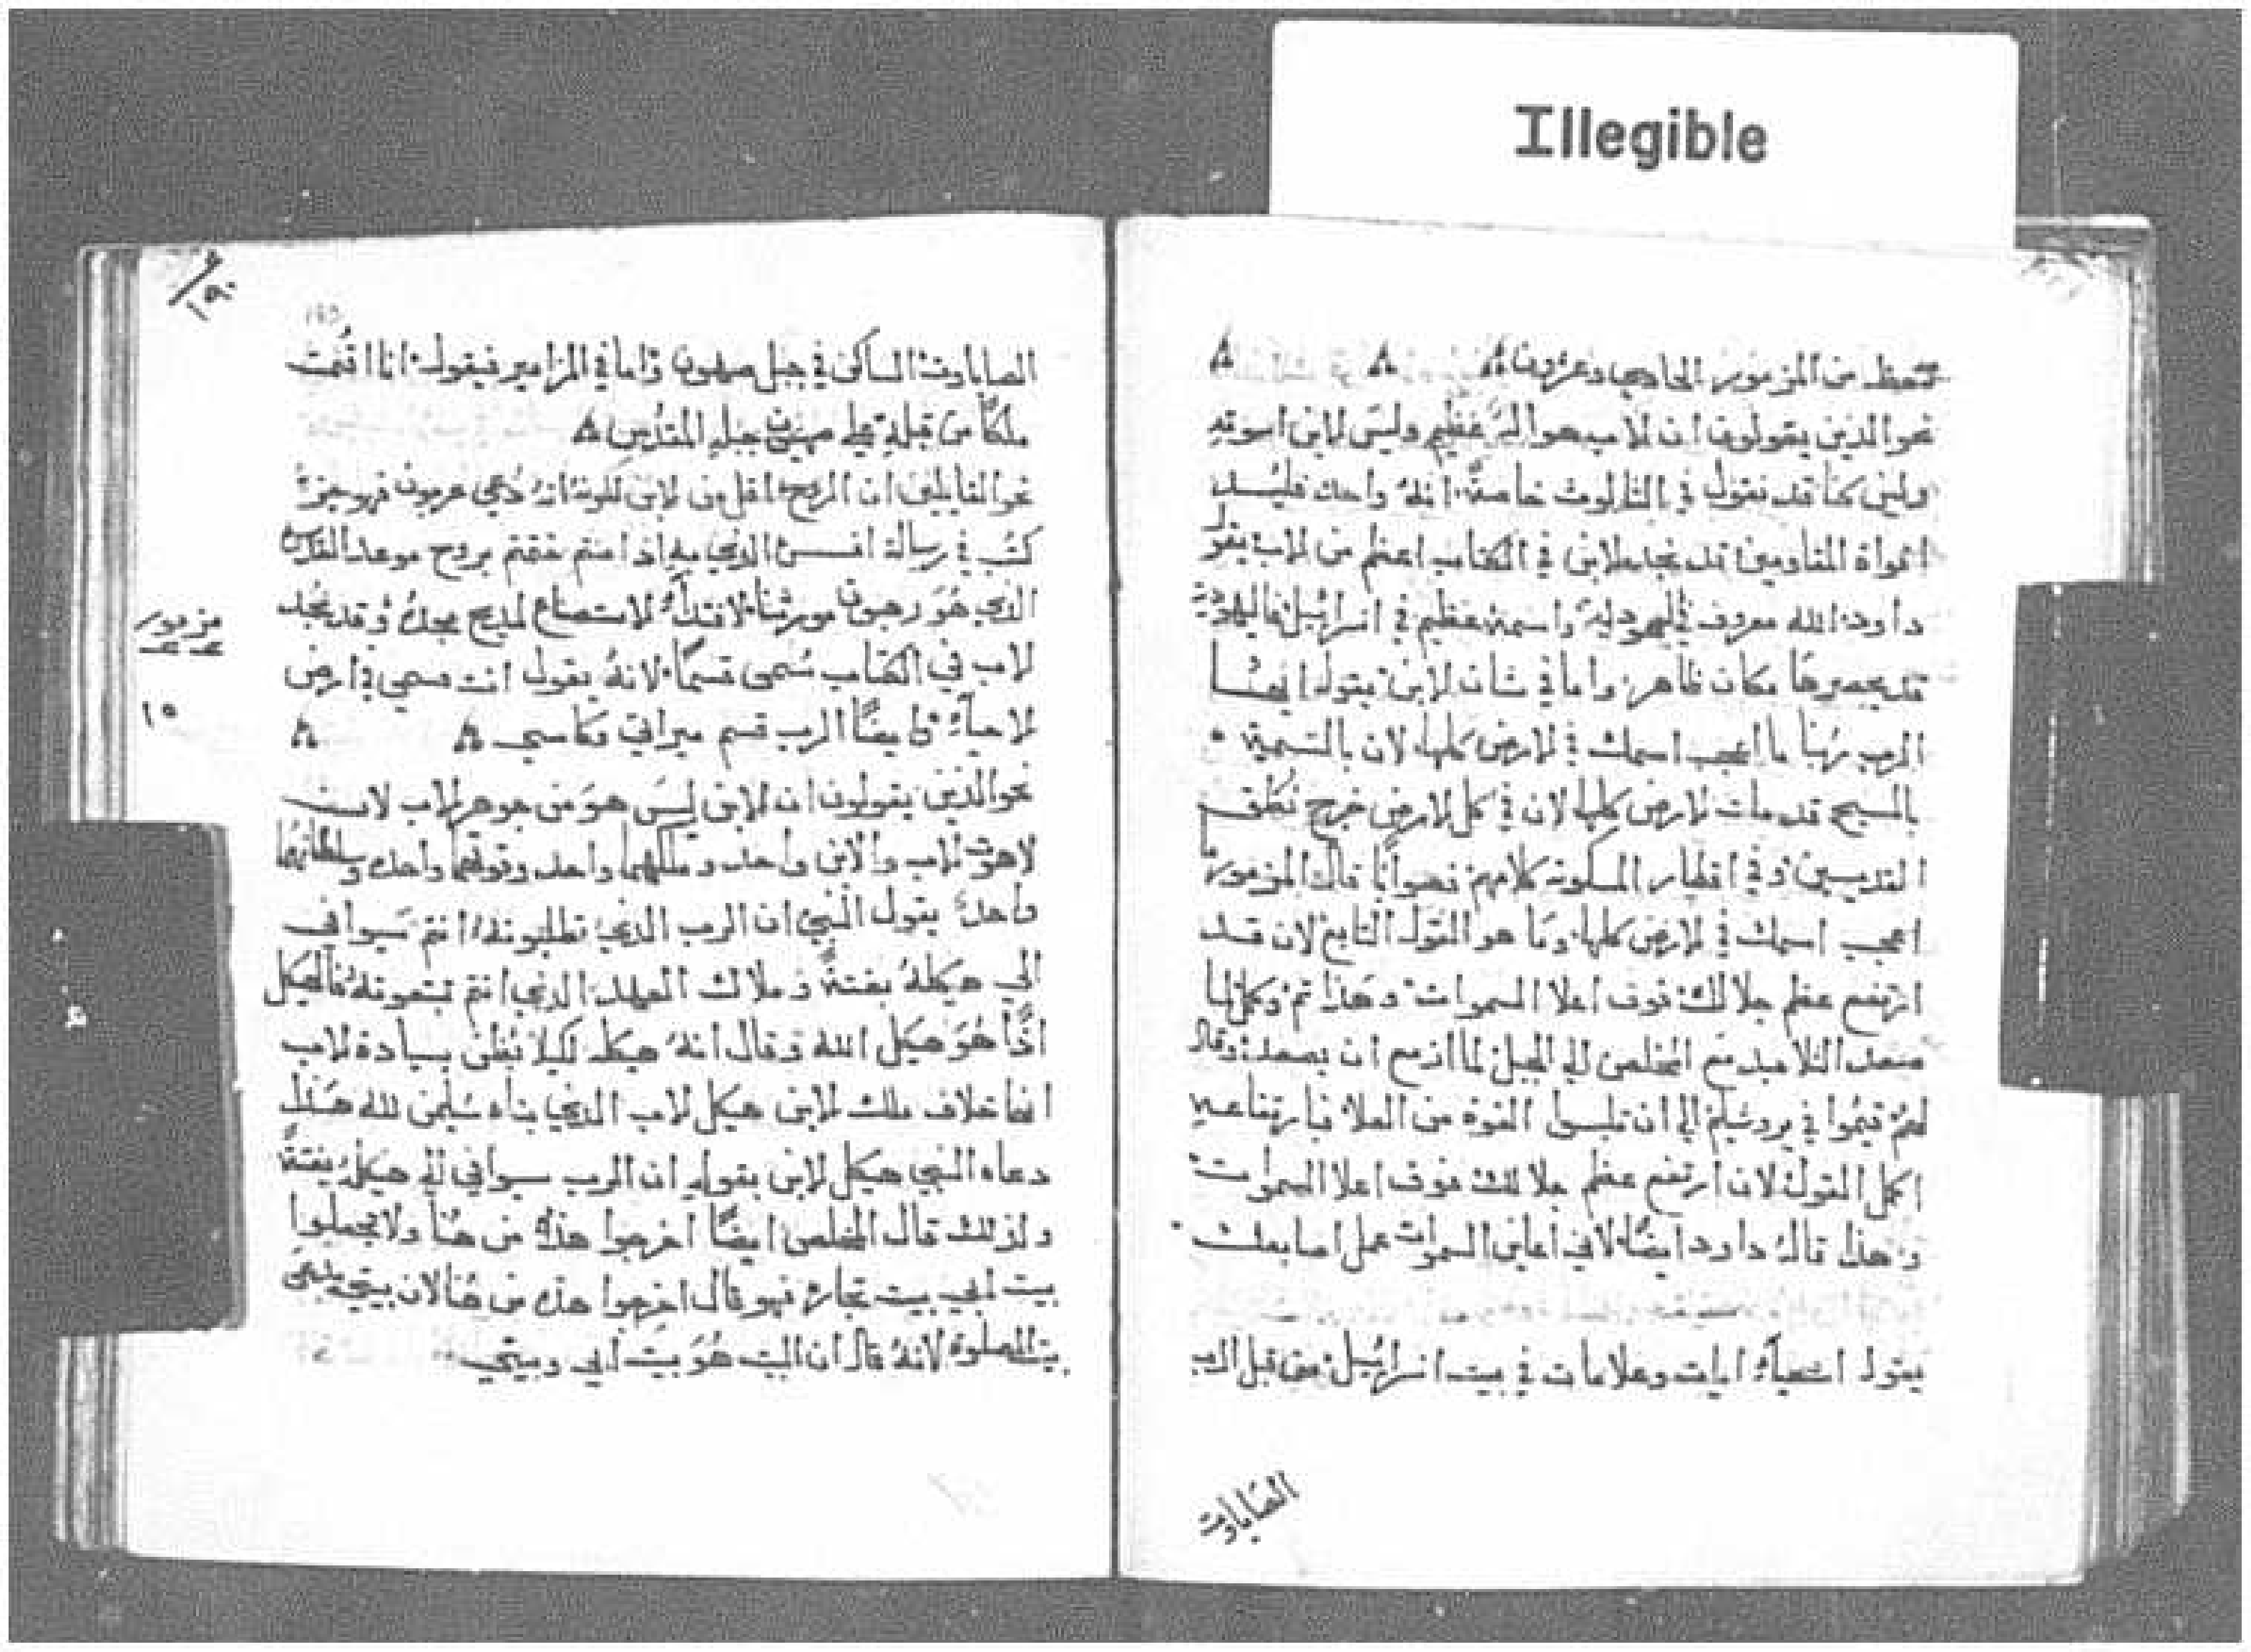 Illegible
من المزمور الحادي وعشرون
نحو الذين يقولون ان لاب هو اله عظيم وليس لابن اسوته
ولين كنا قد نقول في الثالوث خاصةً انه واحد فليسد
افواه المقاومين قد نجد لابن في الكتاب اعظم من لاب يقول
داود الله معروف في اليهودية واسمه عظيم في اسرائيل فاليهودية
قد يحصرها مكان ظاهر واما في شان لابن يقول ايضا
الرب ربنا ما اعجب اسمك في لارض كلها لان بالتسمية
بالمسيح قد ملت لارض كلها لان في كل لارض خرج نطق
القديسين وفي اقطار المسكونه كلامهم فصوابًا قال المزمور ما
اعجب اسمك في لارض كلها وما هو القول التابع لان قد
ارتفع عظم جلالك فوق اعلا السموات وهذا تم وكمل لما
صعد التلاميذ مع المخلص الي الجبل لما ازمع ان يصعد وقال
لهم قيموا في يروشليم الي ان تلبسوا القوة من العلا فبارتفاعه
اكمل القول لان ارتفع عظم جلالك فوق اعلا السموات
وهذا قاله داود ايضًا لاني اعاين السموات عمل اصابعك
يقول اشعياء ايات وعلامات في بيت اسرائيل من قبل الرب
الصاباوت
الصاباوت الساكن في جبل صهيون واما في المزامير فيقول انا اقُمت
ملكًا من قبله علي صهيون جبله المقدس
نحو القايلين ان الروح اقل من لابن لكونه انه دُعي عربون فهو
كتب في رسالة افسس الذي به اذ امنتم ختمتم بروح موعد القدس
الذي هُوَ رعبون مورثنا لافتداء لاستصناع لمديح مجده وقد نجد
لاب في الكتاب سُمى قسمًا لانهُ يقول انت قسمي في ارض
لاحياء وايضًا الرب قسم ميراثي وكاسي
مزمور
١٥
نحو الذين يقولون ان لابن ليسَ هوَ من جوهر لاب لان
لاهوت لاب والابن واحد وملكهما واحد وقوتهما واحده وسلطانهما
واحد يقول النبي ان الرب الذي تطلبونهُ انتم سيوافي
الي هيكلهُ بغتةً وملاك العهد الذي انتم تبتغونهُ فالهيكل
اذًا هُوَ هيكل الله وقال انهُ هيكله لكيلا نظن بسيادة لاب
انها خلاف ملك لابن هيكل لاب الذي بناه سليمن لله هذا
دعاه النبي هيكل لابن بقوله ان الرب سيوافي الي هيكله بغتةً
ولذلك قال المخلص ايضًا اخرجوا هذه من هُنا ولا تجعلوا
بيت ابي بيت تجاره فهو قال اخرجوا هذه من هُنا لان بيتي يدعى
بيت الصلوة لانهُ قال ان البيت هُوَ بيت ابي وبيتي